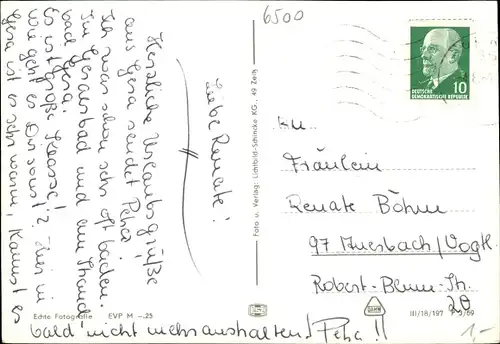 6500
Liebe Renate!
Herzliche Urlaubsgrüße
aus Gera sendet Petra.
Ich war schon sehr oft baden.
Im Geraerbad und am Strand
bad Gera.
Es ist große Klasse!
Wie geht es Dir sonst? Hier in
Gera ist es sehr warm, kannst es
bald nicht mehr aushalten! Petra!!
Echte Fotografie EVP M -.25
Foto u. Verlag: Lichtbild-Schincke KG., 49 Zeitz
DEUTSCHE
DEMOKRATISCHE REPUBLIK
10
Fräulein
Renate Böhm
97 Auerbach/Vogtl.
Robert-Blum-Str.
20
III/18/197
1,-